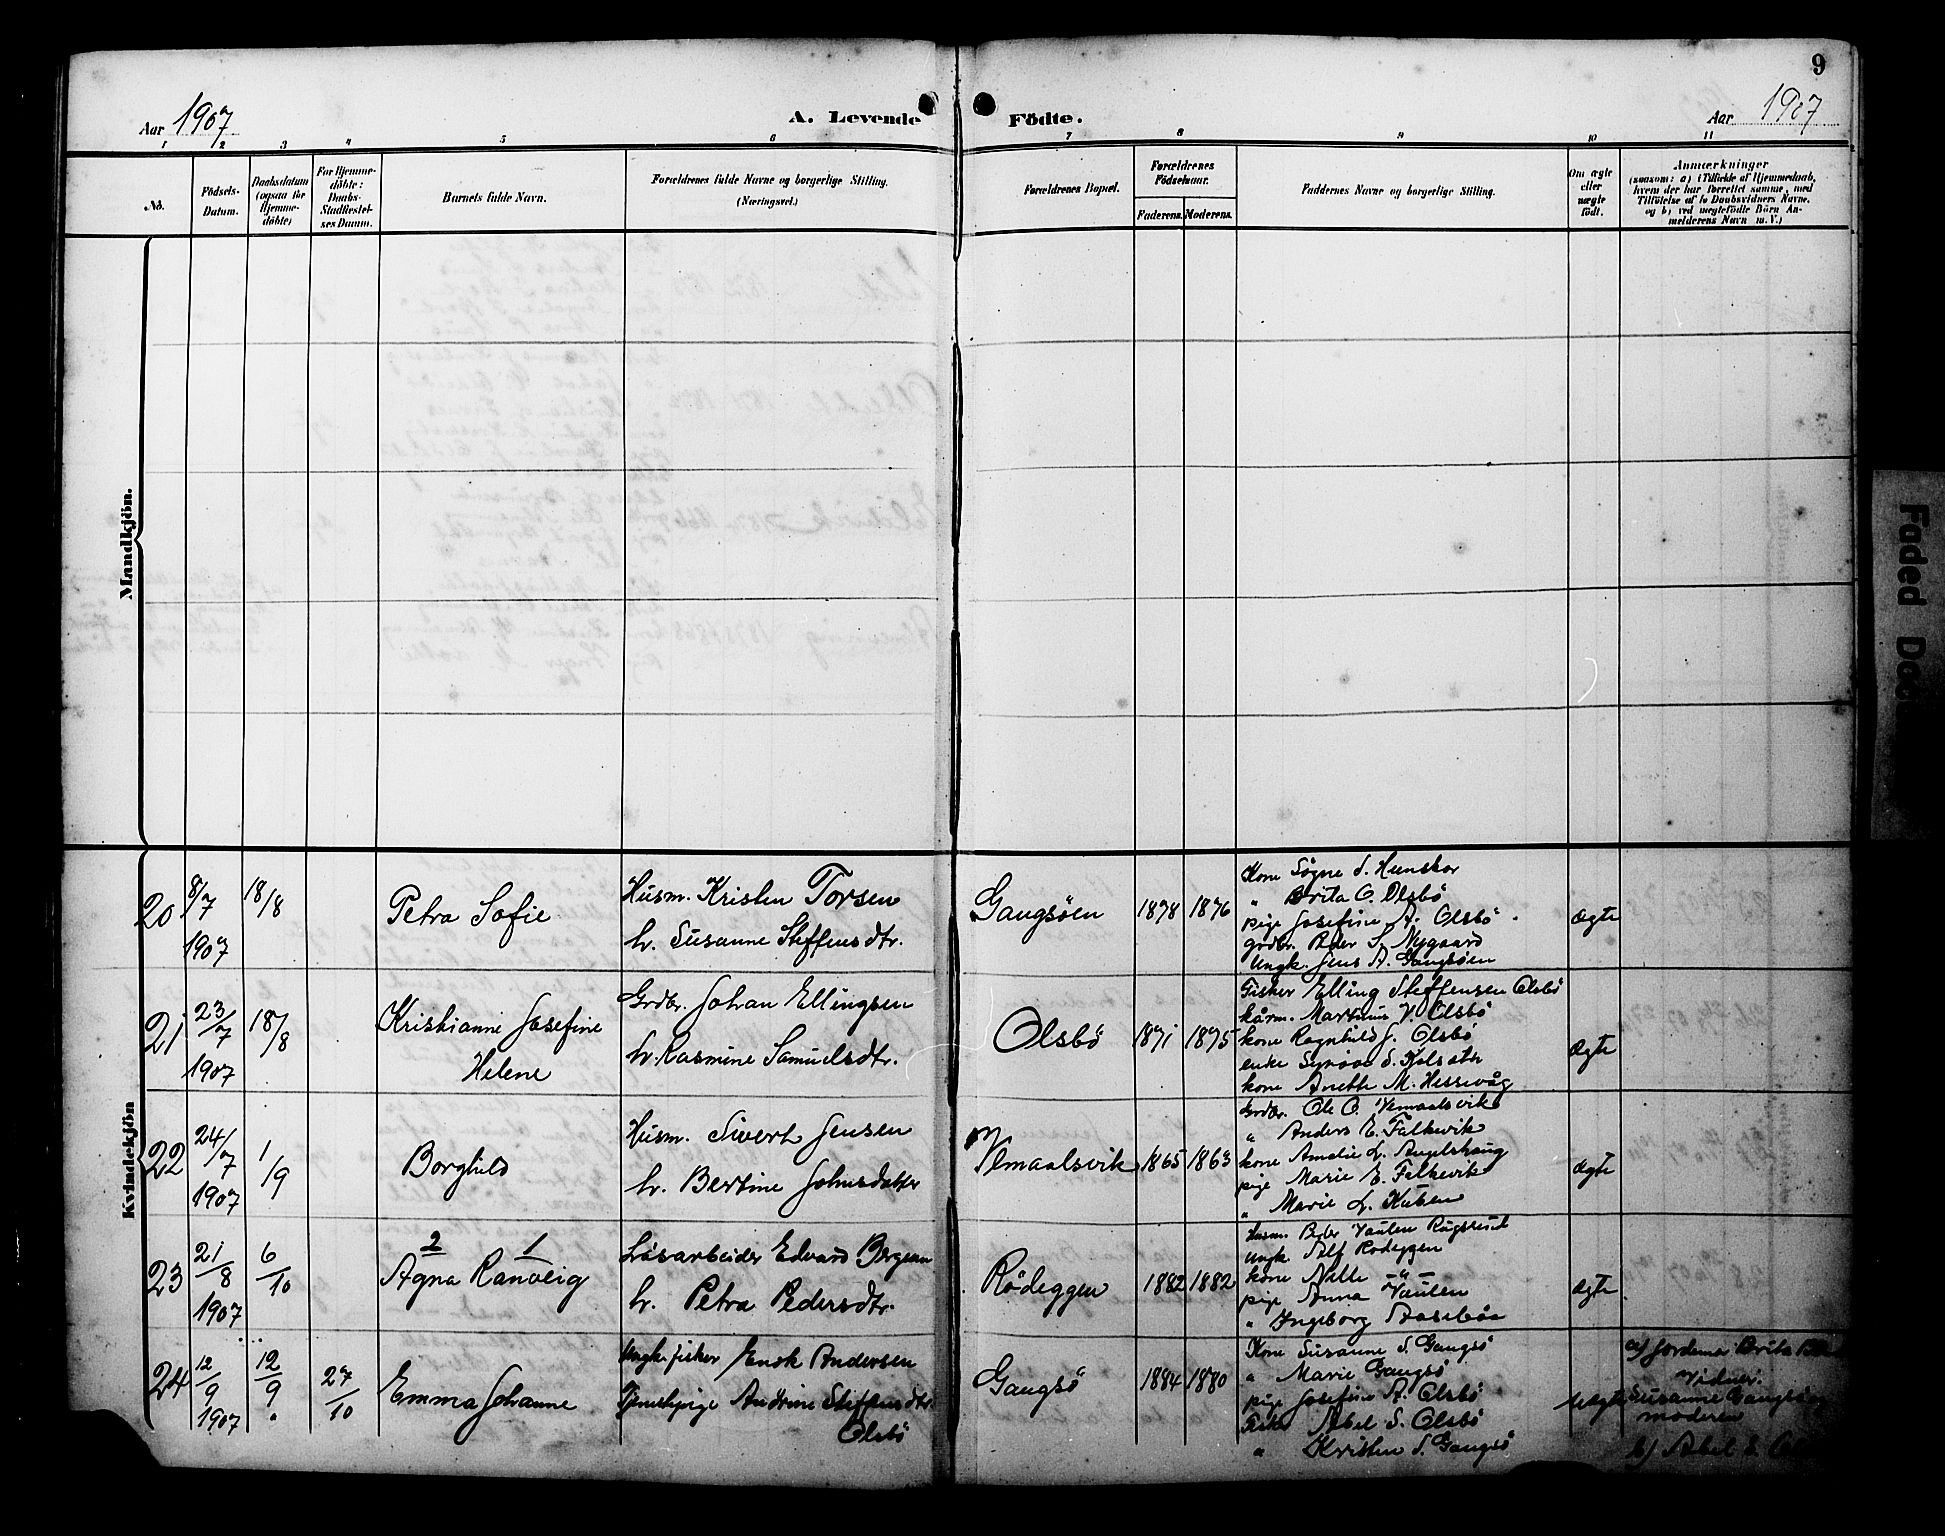 9
Aar 1907
A. Levende Födte.
Aar 1907
1 2 3 4 5 6 7 8 9 10 11
No.
Födsels-
Datum.
Daabsdatum
(ogsaa for
Hjemme-
döbte)
For Hjemme-
döbte:
Daabs-
Stadfæstel-
ses Datum.
Barnets fulde Navn.
Forældrenes fulde Navne og borgerlige Stilling.
(Næringsvei.)
Forældrenes Bopæl.
Forældrenes
Födselsaar.
Faderens. Moderens.
Faddernes Navne og borgerlige Stilling.
Om ægte
eller
uægte
födt.
Anmærkninger
(saasom: a) i Tilfælde af Hjemmedaab,
hvem der har forrettet samme, med
Tilföielse af to Daabsvidners Navne,
og b) ved uægtefödte Börn An-
melderens Navn m. V.)
Mandkjön.
Kvindekjön
20
8/7
1907
18/8
Petra Sofie
Husm. Kristen Torsen
h. Susanne Steffensdtr.
Gangsöen
1878 1876
Kone Søgne S. Hunskor
" Brita O. Olsbö
pige Josefine A. Olsbö
grdbr. Peder S. Nygaard
Ungk. Jens A. Gangsöen
Ægte
21
23/7
1907
18/8
Kristianne Josefine
Helene
Grdbr. Johan Ellingsen
h. Rasmine Samuelsdtr.
Olsbö
1871 1875
Fisker Elling Steffensen Olsbö
kårm. Martinus V. Olsbö
kone Ragnhild J. Olsbö
enke Synöve S. Kolsæth
kone Anette M. Hessevåg
Ægte
22
24/7
1907
1/9
Borghild
Husm. Sivert Jensen
h. Bertine Johnsdatter
Vemaalsvik
1865 1863
Grdbr. Ole O. Vemaalsvik
" Anders E. Falkevik
kone Amalie L.
pige Marie E. Falkevik
" Marie L. Kuben
Ægte
23
21/8
1907
6/10
2 1
Agna Ranveig
Lösarbeider Edvard Bergman
h. Petra Pedersdtr.
Rödeggen
1882 1882
Husm. Peder Vaulen
Ungk. Alf Rodeggen
kone Nille – " –
pige Anna Vaulen
" Ingeborg
Ægte
24
12/9
1907
12/9
"
27/10
Emma Johanne
Ungk. fisker Enok Andersen
Tjenestpige Andrine Steffensdtr.
Olsbö
Gangsö
1884 1880
Kone Susanne S. Gangsö
" Marie Gangsö
pige Josefine A. Olsbö
Fisker Abel S. Olsbö
" Kristen S. Gangsö
Uægte
a) Jordemor Brita
Vidner:
Susanne Gangsö og
moderen
b) Abel S.
Faded